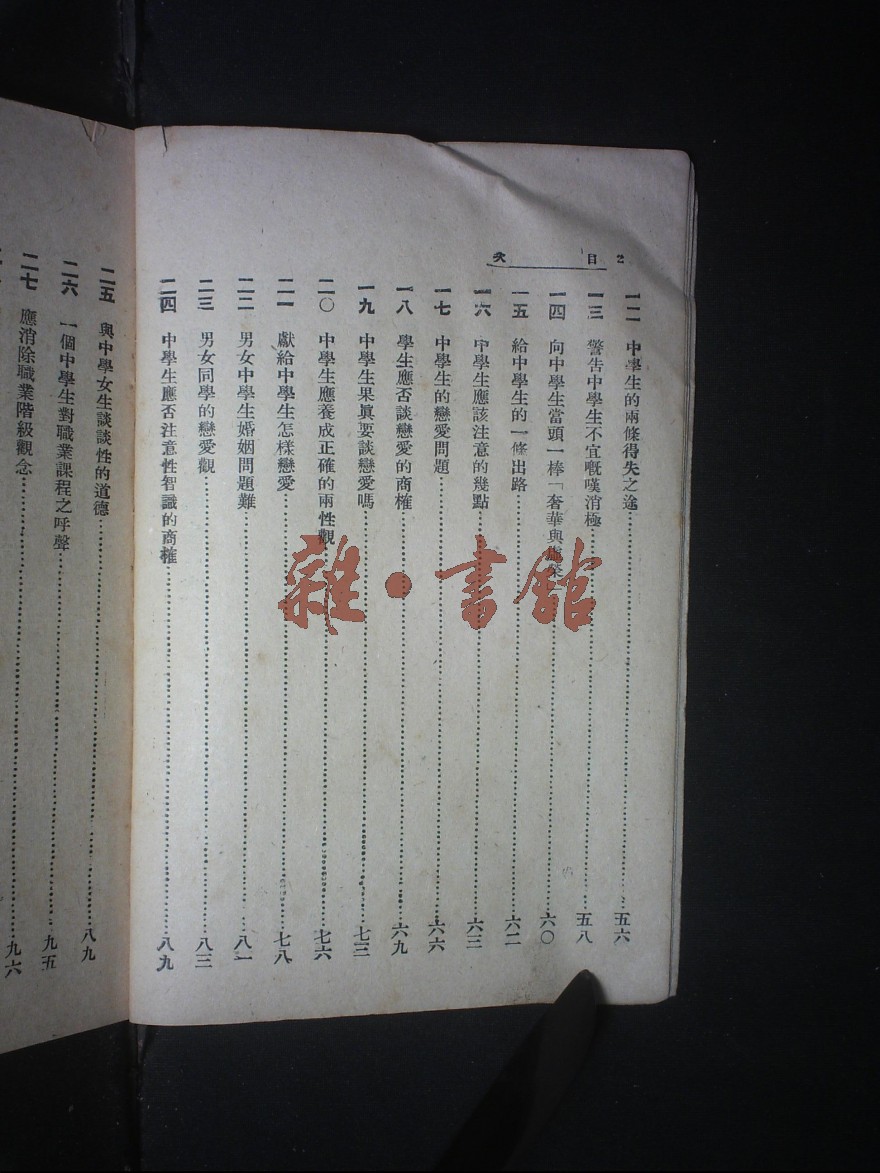 目次 2
一二 中學生的兩條得失之途……五六
一三 警告中學生不宜慨嘆消極……五八
一四 向中學生當頭一棒「奢華與……六〇
一五 給中學生的一條出路……六二
一六 中學生應該注意的幾點……六三
一七 中學生的戀愛問題……六六
一八 學生應否談戀愛的商榷……六九
一九 中學生果眞要談戀愛嗎……七三
二〇 中學生應養成正確的兩性觀……七六
二一 獻給中學生怎樣戀愛……七八
二二 男女中學生婚姻問題難……八一
二三 男女同學的戀愛觀……八三
二四 中學生應否注意性智識的商榷……八九
二五 與中學女生談談性的道德……八九
二六 一個中學生對職業課程之呼聲……九五
二七 應消除職業階級觀念……九六
雜·書館